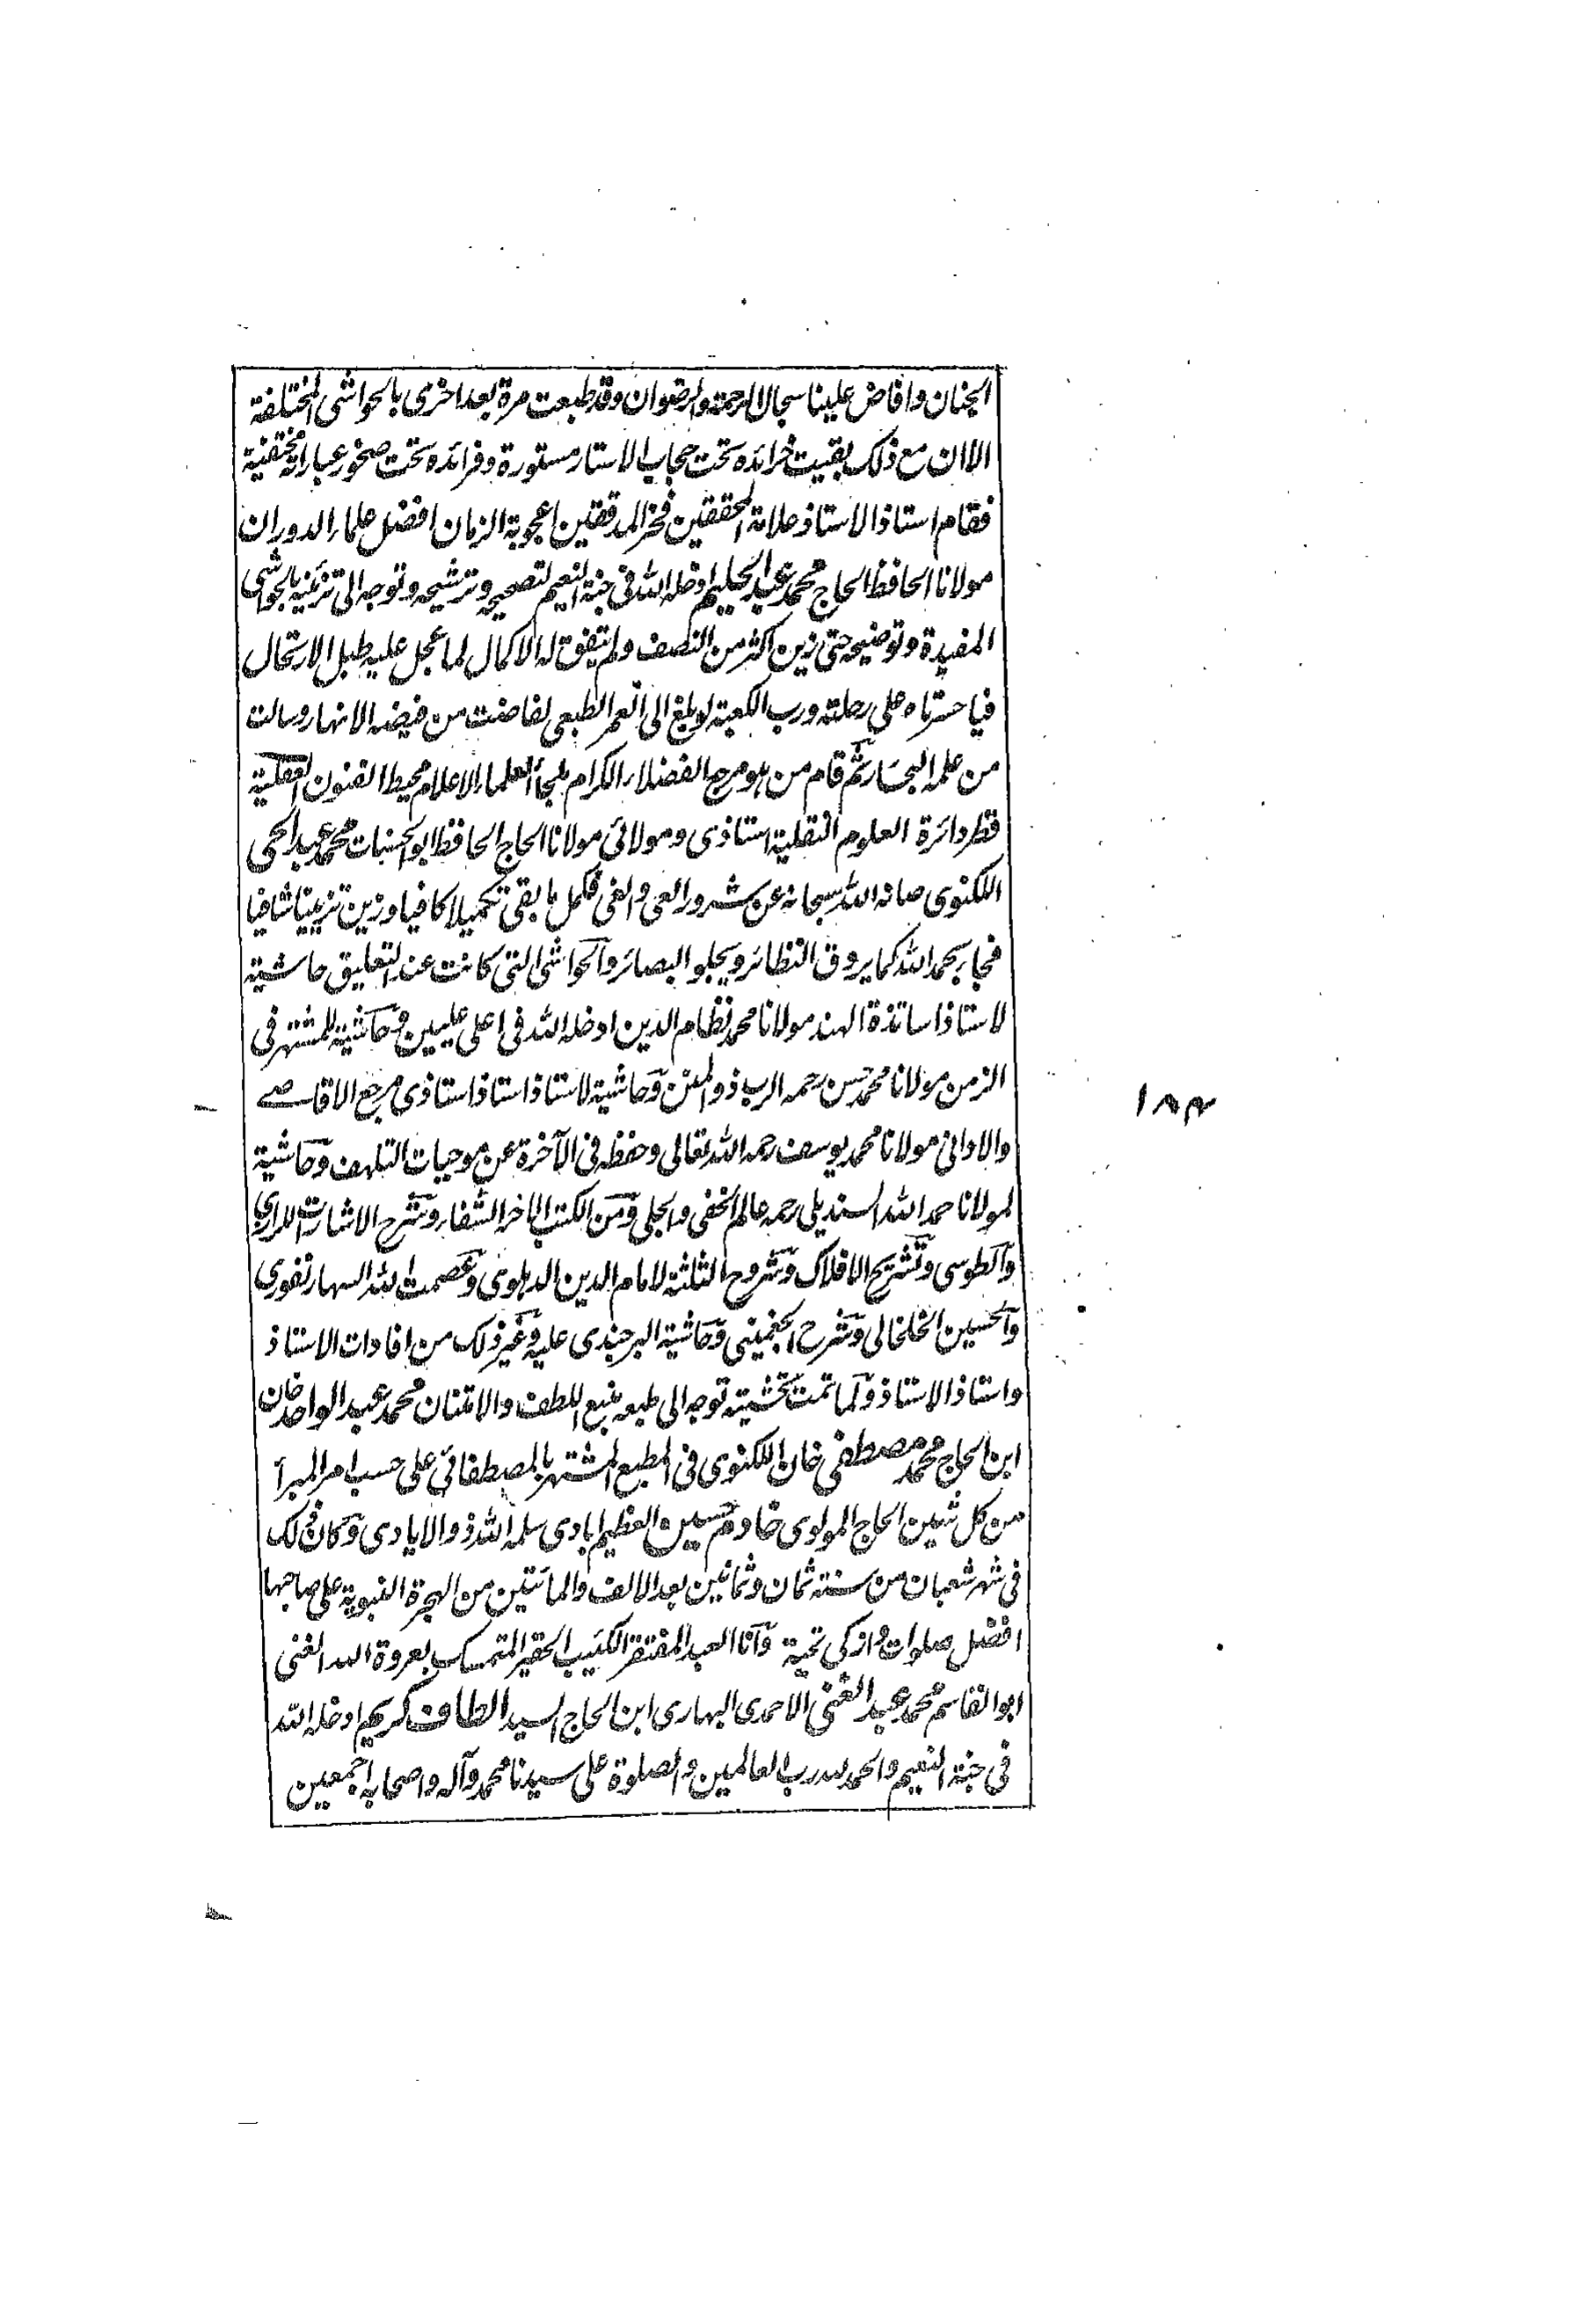 الجنان وافاض علينا سجال الرحمة والرضوان وقد طبعت مرة بعد اخرى بالحواشى المختلفة
الا ان مع ذلك بقيت خرائده تحت حجاب الاستار مستورة وفرائده تحت صخور عباراته مختفية
فقام استاذ الاستاذ علامة المحققين فخر المدققين اعجوبة الزمان افضل علماء الدوران
مولانا الحافظ الحاج محمد عبد الحليم ادخله الله فى جنة النعيم لتصحيحه وترشيحه وتوجه الى تزئينه بالحواشى
المفيدة وتوضيحه حتى زين اكثر من النصف ولم يتفق له الاكمال لما عجل عليه طبل الارتحال
فيا حسرتاه على رحلته ورب الكعبة لو بلغ الى العمر الطبعى لفاضت من فيضه الانهار وسالت
من علمه البحار ثم قام من هو مرجع الفضلاء الكرام ملجأ العلماء الاعلام محيط الفنون العقلية
قطر دائرة العلوم النقلية استاذى ومولائى مولانا الحاج الحافظ ابو الحسنات محمد عبد الحى
اللكنوى صانه الله سبحانه عن شرور العى والغى فكمل ما بقى تكميلا كافيا وزين تزيينا شافيا
فجاء بحمد الله كما يروق النظائر ويجلو البصائر والحواشى التى كانت عند التعليق حاشية
لاستاذ اساتذة الهند مولانا محمد نظام الدين ادخله الله فى اعلى عليين وحاشية للمشتهر فى
الزمن مولانا محمد حسن رحمه الرب ذو المنن وحاشية لاستاذ استاذ استاذى مرجع الاقاصے
والادانى مولانا محمد يوسف رحمه الله تعالى وحفظه فى الآخرة عن موجبات التلهف وحاشية
لمولانا حمد الله السنديلى رحمه عالم الخفى والجلى ومن الكتب الاخر الشفاء وشرح الاشارات للرازى
والطوسى وتشريح الافلاك وشروح الثلثة لامام الدين الدهلوى وعصمت الله السهارنفورى
والحسين الخلخالى وشرح الجغمينى وحاشية البرجندى عليه وغير ذلك من افادات الاستاذ
واستاذ الاستاذ ولما تمت تحشيته توجه الى طبعه منبع اللطف والامتنان محمد عبد الواحد خان
ابن الحاج محمد مصطفى خان اللكنوى فى المطبع المشتهر بالمصطفائى على حسب امر المبرأ
من كل شين الحاج المولوى خادم حسين العظيم ابادى سلمه الله ذو الايادى وكان ذلك
فى شهر شعبان من سنة ثمان وثمانين بعد الالف والمائتين من الهجرة النبوية على صاحبها
افضل صلوات وازكى تحية وانا العبد المفتقر الكئيب الحقير المتمسك بعروة الله الغنى
ابو القاسم محمد عبد الغنى الاحمدى البهارى ابن الحاج السيد الطاف كريم ادخله الله
فى جنة النعيم والحمد لله رب العالمين والصلوة على سيدنا محمد وآله واصحابه اجمعين
۱۸۴